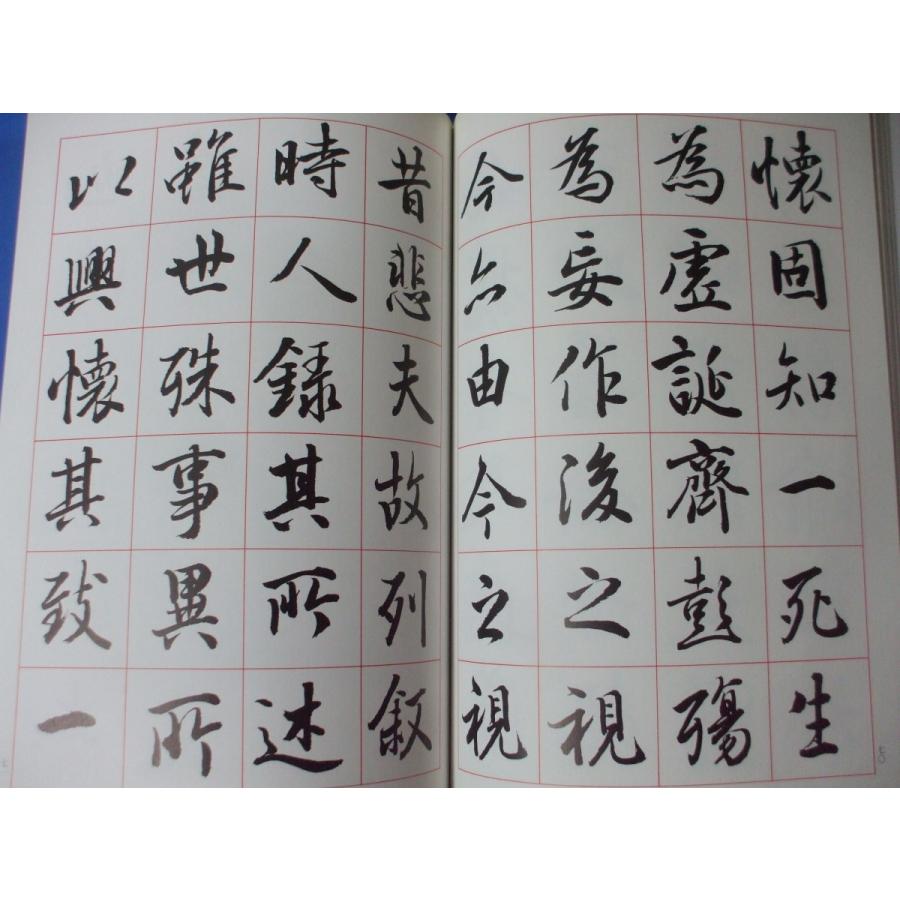 懷固知一死生
為虛誕齊彭殤
為妄作後之視
今亦由今之視
昔悲夫故列敘
時人錄其所述
雖世殊事異所
以興懷其致一